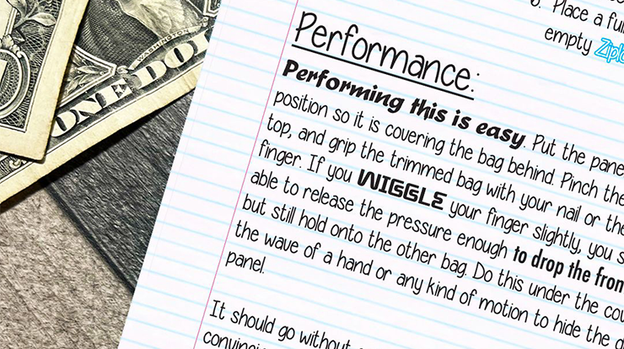 ONE DOL
Place a
empty
Performance:
Performing this is easy. Put the
position so it is covering the bag behind. Pinch the
top, and grip the trimmed bag with your nail or the
finger. If you WIGGLE your finger slightly, you
able to release the pressure enough to drop the
but still hold onto the other bag. Do this under the
the wave of a hand or any kind of motion to hide the
panel.
It should go without